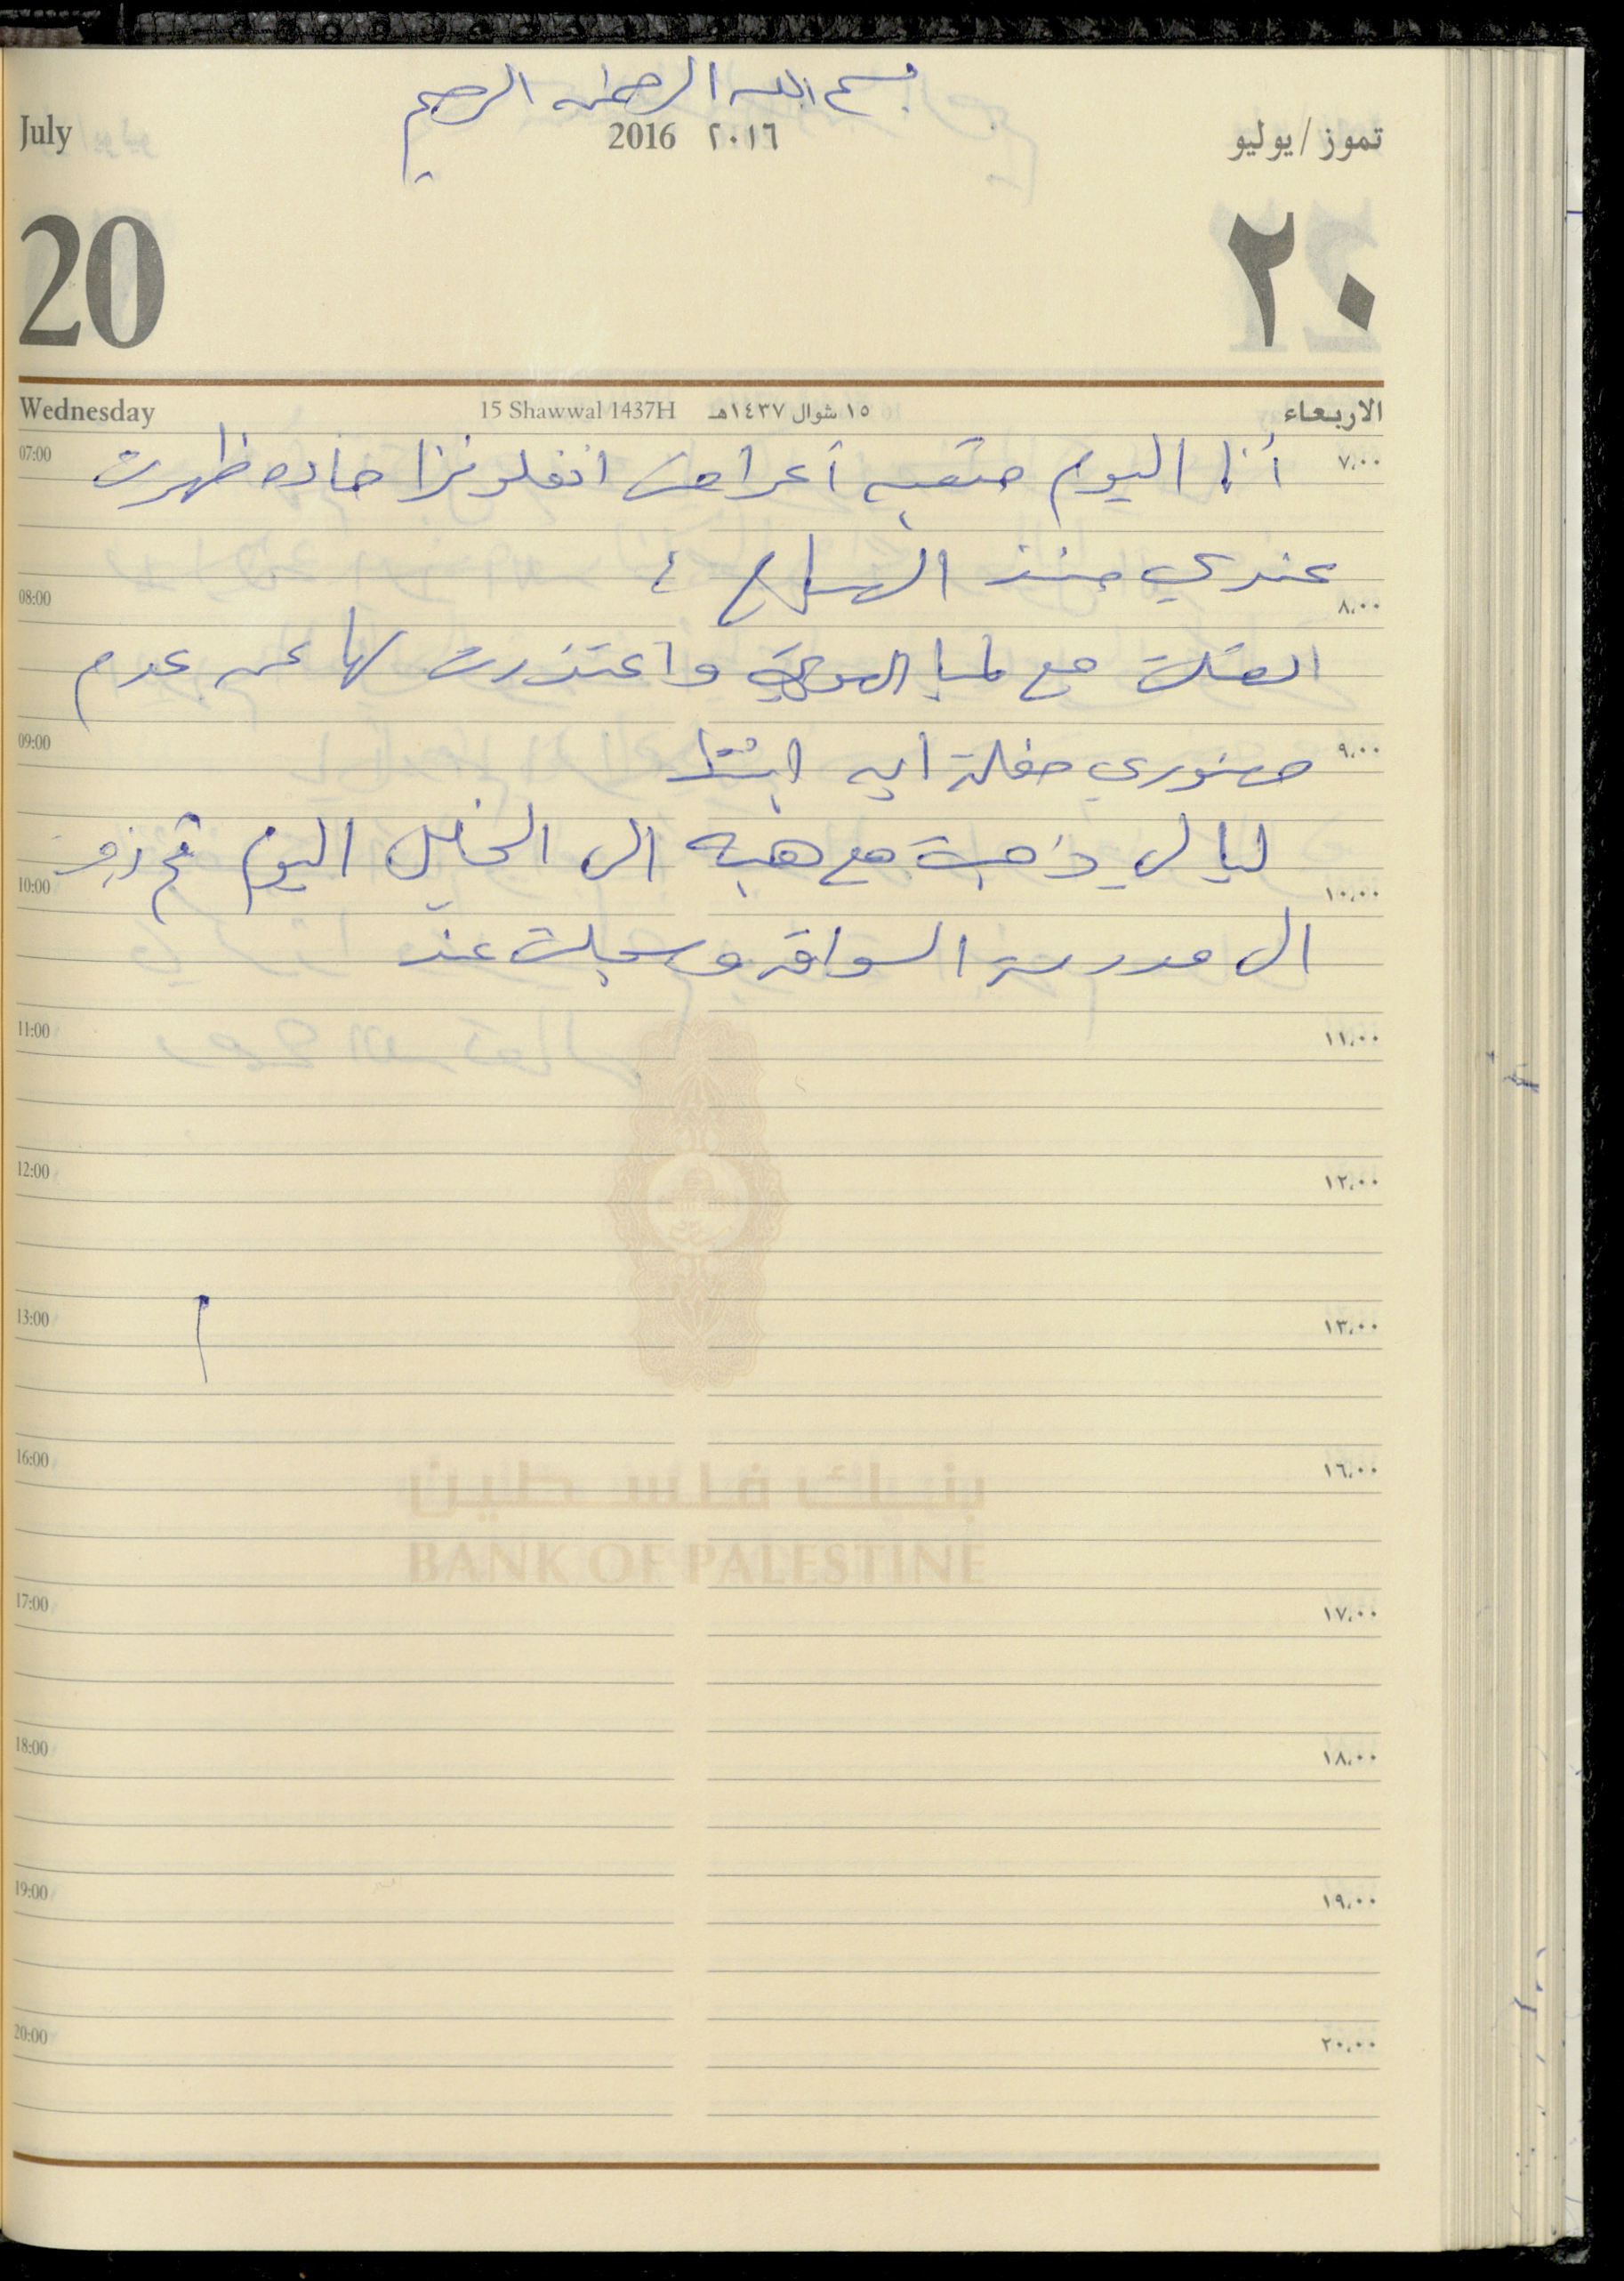 بسم الله الرحمن الرحيم
July 2016 ٢٠١٦ تموز / يوليو
20 ٢٠
Wednesday 15 Shawwal 1437H ١٥ شوال ١٤٣٧هـ الاربعاء
07:00 أنا اليوم متعبه أعراض انفلونزا حاده ظهرت ٧،٠٠
عندي منذ الصباح
08:00 ٨،٠٠
اتصلت مع لميا واعتذرت لها عن عدم
09:00 حضوري حفلة ابنتها ٩،٠٠
ليالي ذهبت مع هبه الى الخليل اليوم ثم
10:00 ١٠،٠٠
الى مدرسة السواقه وسجلت عند
11:00 ١١،٠٠
12:00 ١٢،٠٠
13:00 ١٣،٠٠
16:00 ١٦،٠٠
بنك فلسطين
BANK OF PALESTINE
17:00 ١٧،٠٠
18:00 ١٨،٠٠
19:00 ١٩،٠٠
20:00 ٢٠،٠٠